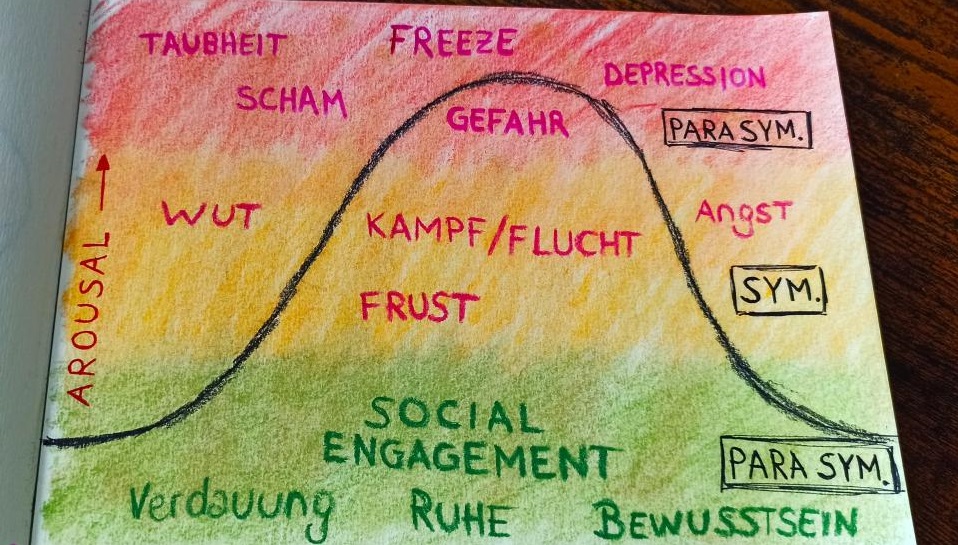 TAUBHEIT FREEZE
DEPRESSION
SCHAM
GEFAHR
PARA SYM.
WUT
Angst
KAMPF/FLUCHT
SYM.
FRUST
AROUSAL
SOCIAL
ENGAGEMENT
PARA SYM.
Verdauung RUHE BEWUSSTSEIN